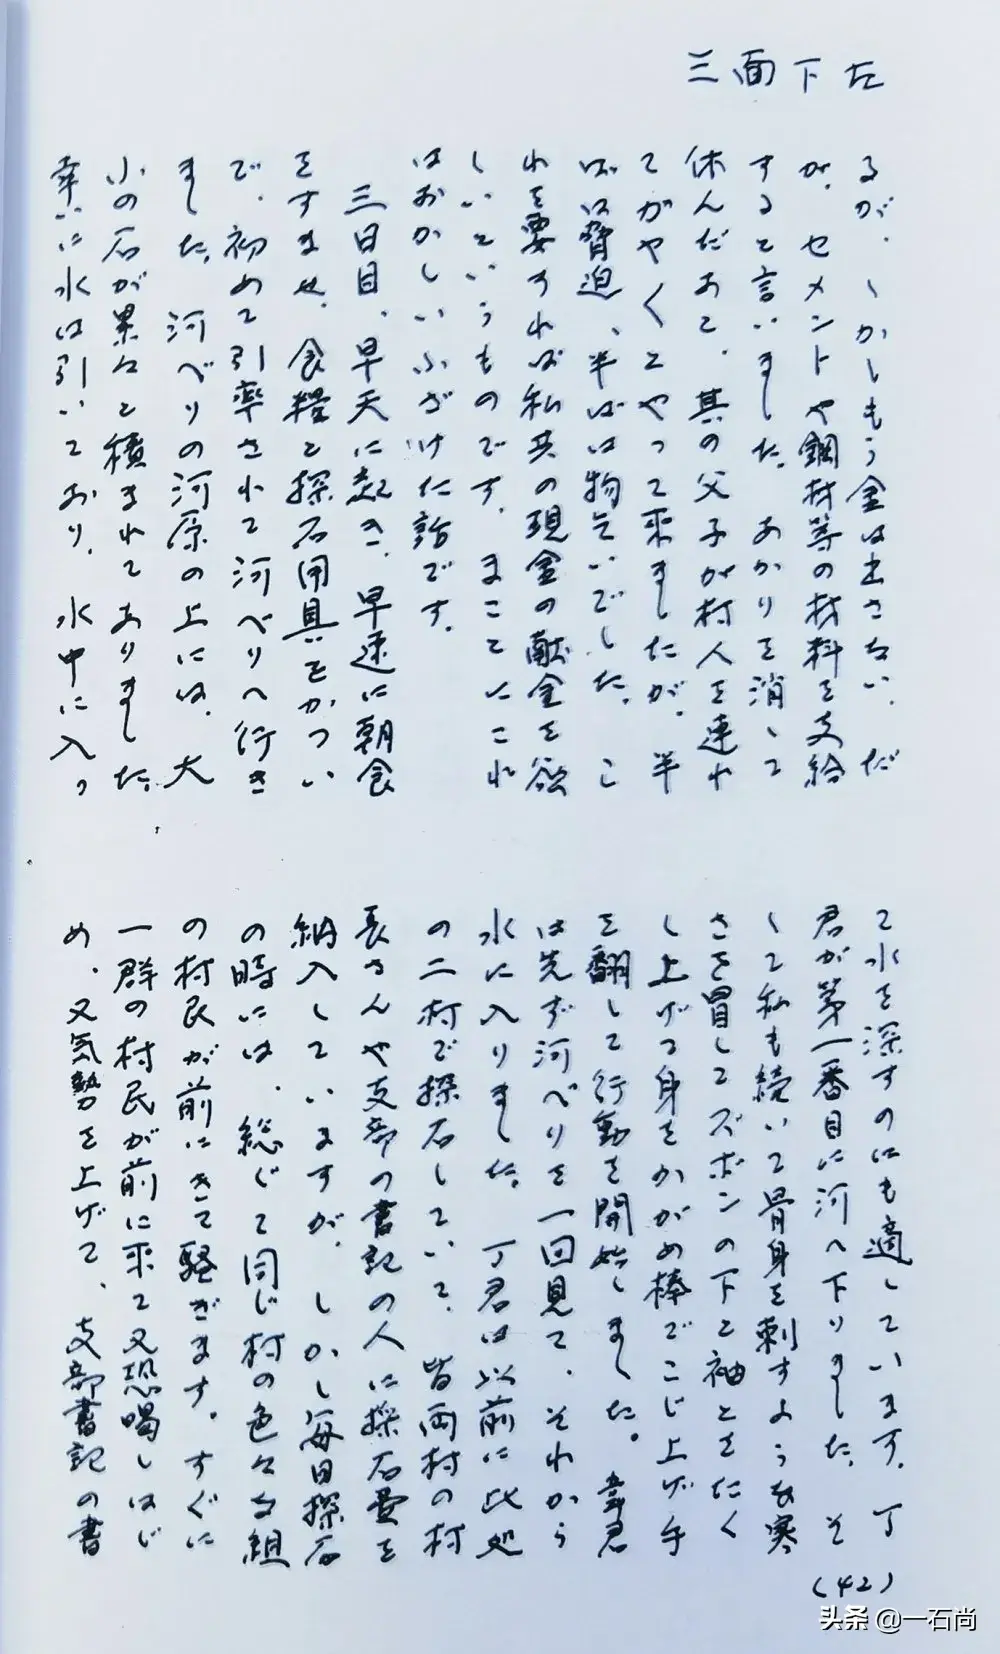 三面下左
るが、しかしもう金は出さない、だ
が、セメントや鋼材等の材料を支給
すると言いました。あかりを消して
休んだあと、其の父子が村人を連れ
てがやくとやって来ましたが、半
ばは脅迫、半ばは物乞いでした。こ
れを要すれば私共の現金の献金を欲
しいというものです。まことにこれ
はおかしいふざけた話です。
三日目、早天に起き、早速に朝食
をすませ、食糧と探石用具をかつい
で、初めて引率されて河べりへ行き
ました。河べりの河原の上には、大
小の石が累々と積まれてありました。
幸いに水は引いており、水中に入っ
て水を深すのにも適しています。丁
君が第一番目に河へ下りました。そ
して私も続いて骨身を刺すような寒
さを冒してズボンの下と袖とをたく
し上げて身をかがめ棒でこじ上げ手
を翻して行動を開始しました。韋君
は先ず河べりを一回見て、それから
水に入りました。丁君は以前に此処
の二村で探石していて、皆両村の村
長さんや支部の書記の人に採石費を
納入していますが、しかし毎日探石
の時には、総じて同じ村の色々な組
の村民が前にきて騒ぎます。すぐに
一群の村民が前に来て又恐喝しはじ
め、又気勢を上げて、支部書記の書
(42)
头条 @一石尚